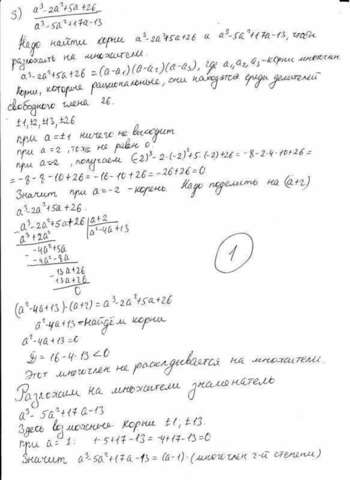 5) a³-2a²+5a+26
a³-5a²+17a-13
Надо найти корни a³-2a²+5a+26 и a³-5a²+17a-13, чтобы
разложить на множители.
a³-2a²+5a+26=(a-a₁)(a-a₂)(a-a₃), где a₁,a₂,a₃-корни многочлена
Корни, которые рациональные, они находятся среди делителей
свободного члена 26.
±1,±2,±13,±26
при a=±1 ничего не выходит
при a=2, тоже не равен 0
при a=-2, получаем (-2)³-2·(-2)²+5·(-2)+26=-8-2·4-10+26=
=-8-8-10+26=-16-10+26=-26+26=0
Значит при a=-2 -корень. Надо поделить на (a+2)
a³-2a²+5a+26.
-a³-2a²+5a+26 | a+2
a³+2a² a²-4a+13
-4a²+5a
-4a²-8a
13a+26
13a+26
0
1
(a²-4a+13)·(a+2)=a³-2a²+5a+26
a²-4a+13=найдём корни
a²-4a+13=0
D=16-4·13<0
Этот многочлен не раскладывается на множители.
Разложим на множители знаменатель
a³-5a²+17a-13
Здесь возможные корни ±1,±13.
при a=1: 1-5+17-13=-4+17-13=0
Значит a³-5a²+17a-13=(a-1)·(многочлен 2-й степени)